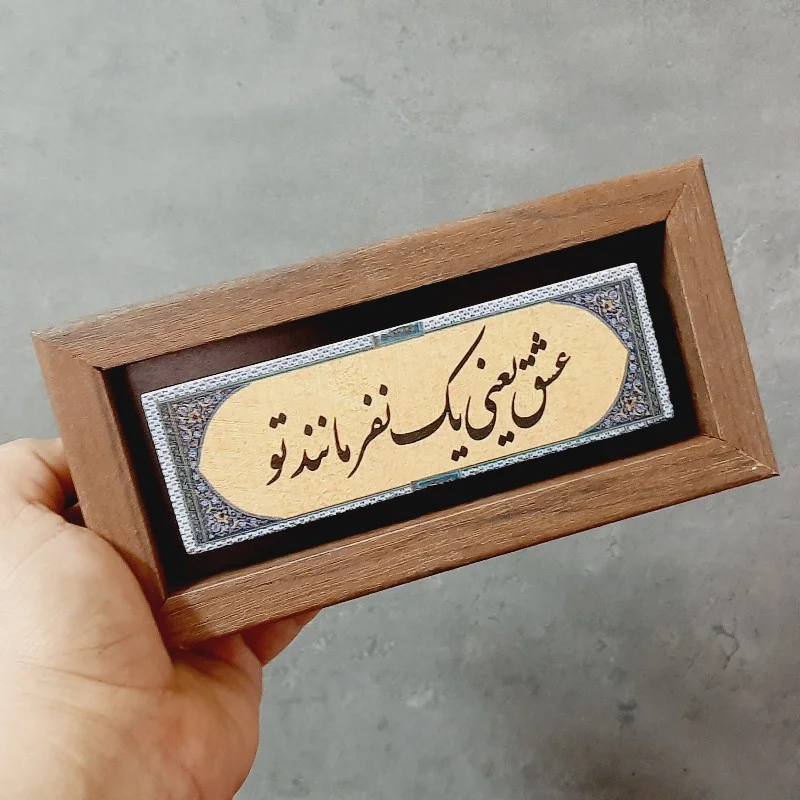 عشق یعنی یک نفر مانند تو